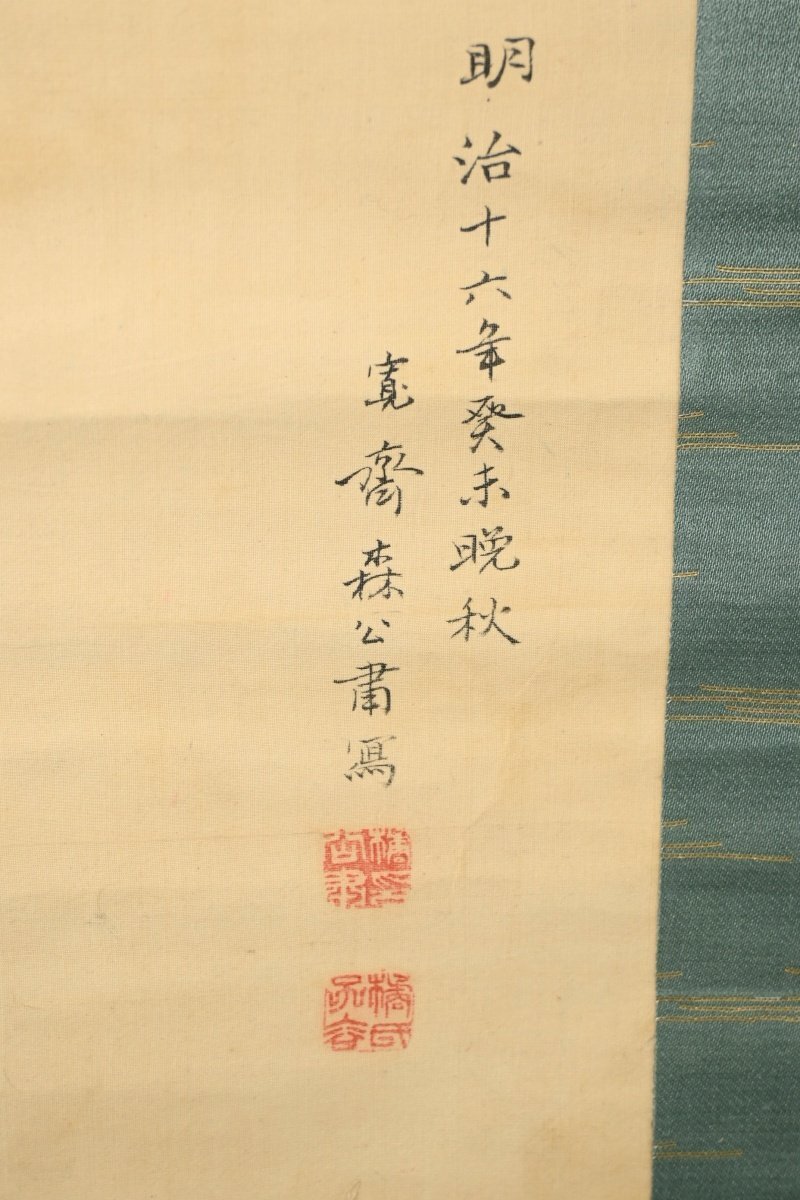 明治十六年癸未晩秋
寛齋森公肅寫
橘氏